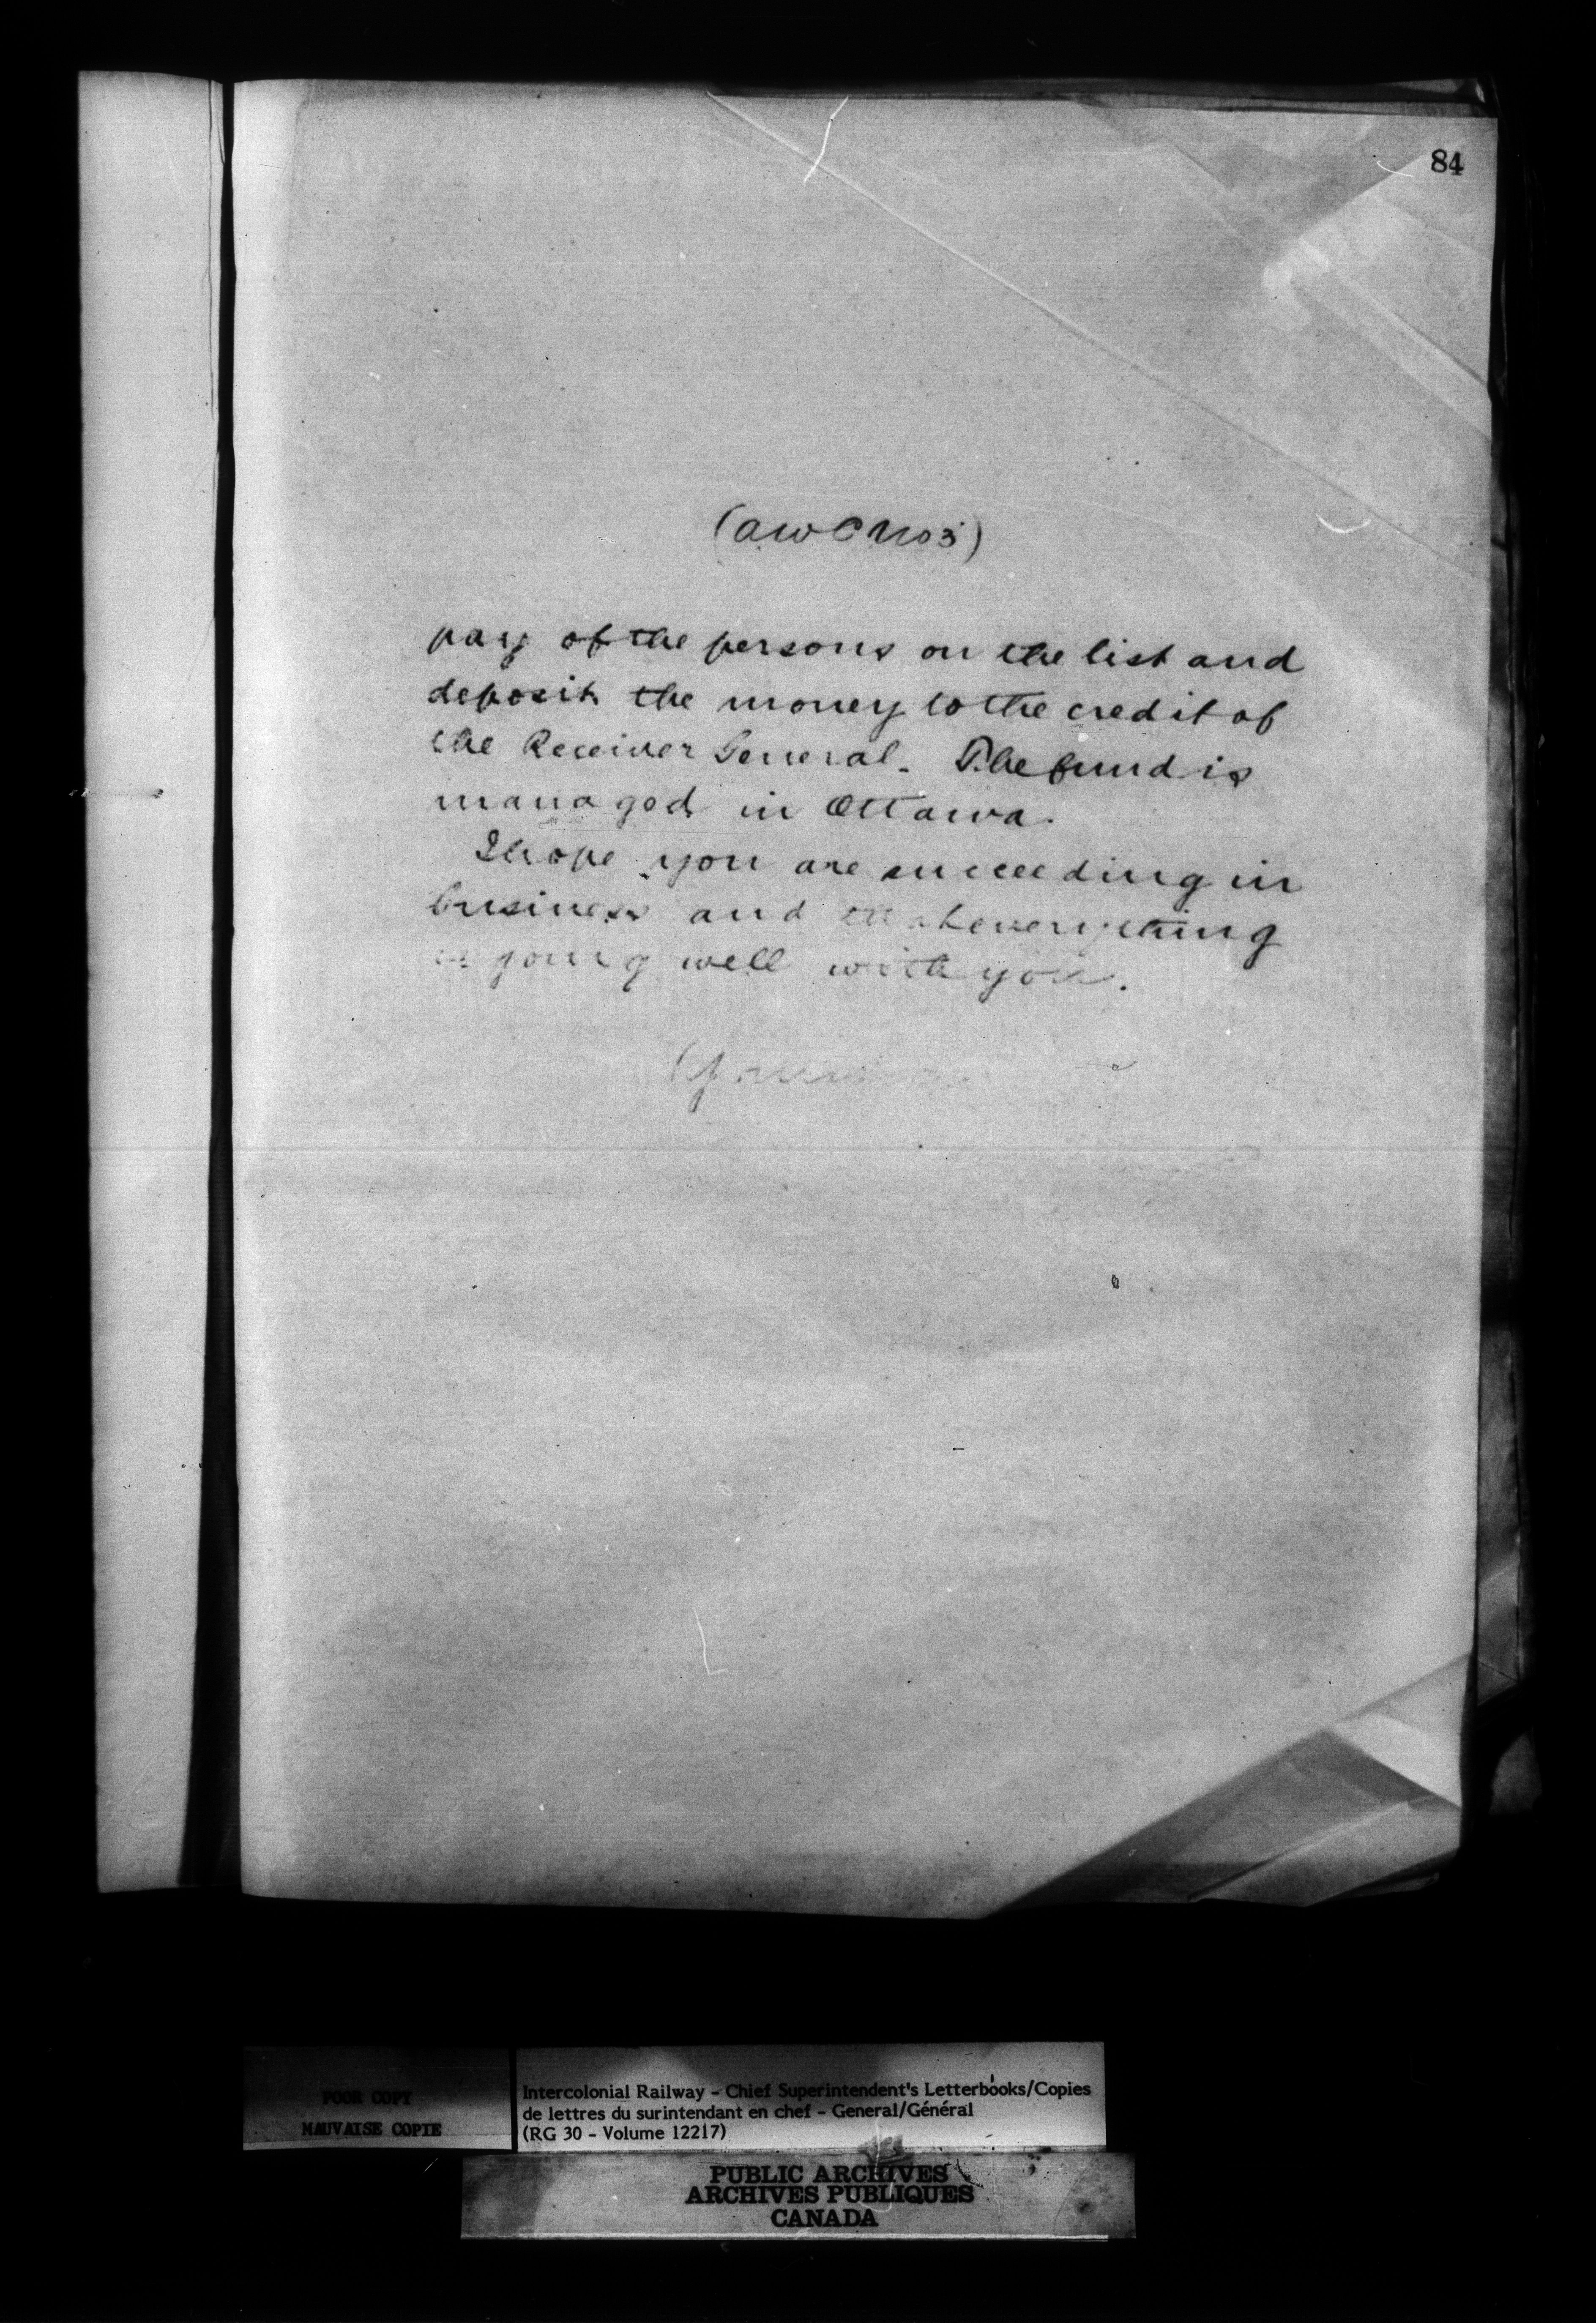 84
(AWC No 3)
pay of the persons on the list and
deposit the money to the credit of
the Receiver General. The fund is
managed in Ottawa.
I hope you are succeeding in
business and that everything
is going well with you.
POOR COPY
MAUVAISE COPIE
Intercolonial Railway - Chief Superintendent's Letterbooks/Copies
de lettres du surintendant en chef - General/Général
(RG 30 - Volume 12217)
PUBLIC ARCHIVES
ARCHIVES PUBLIQUES
CANADA